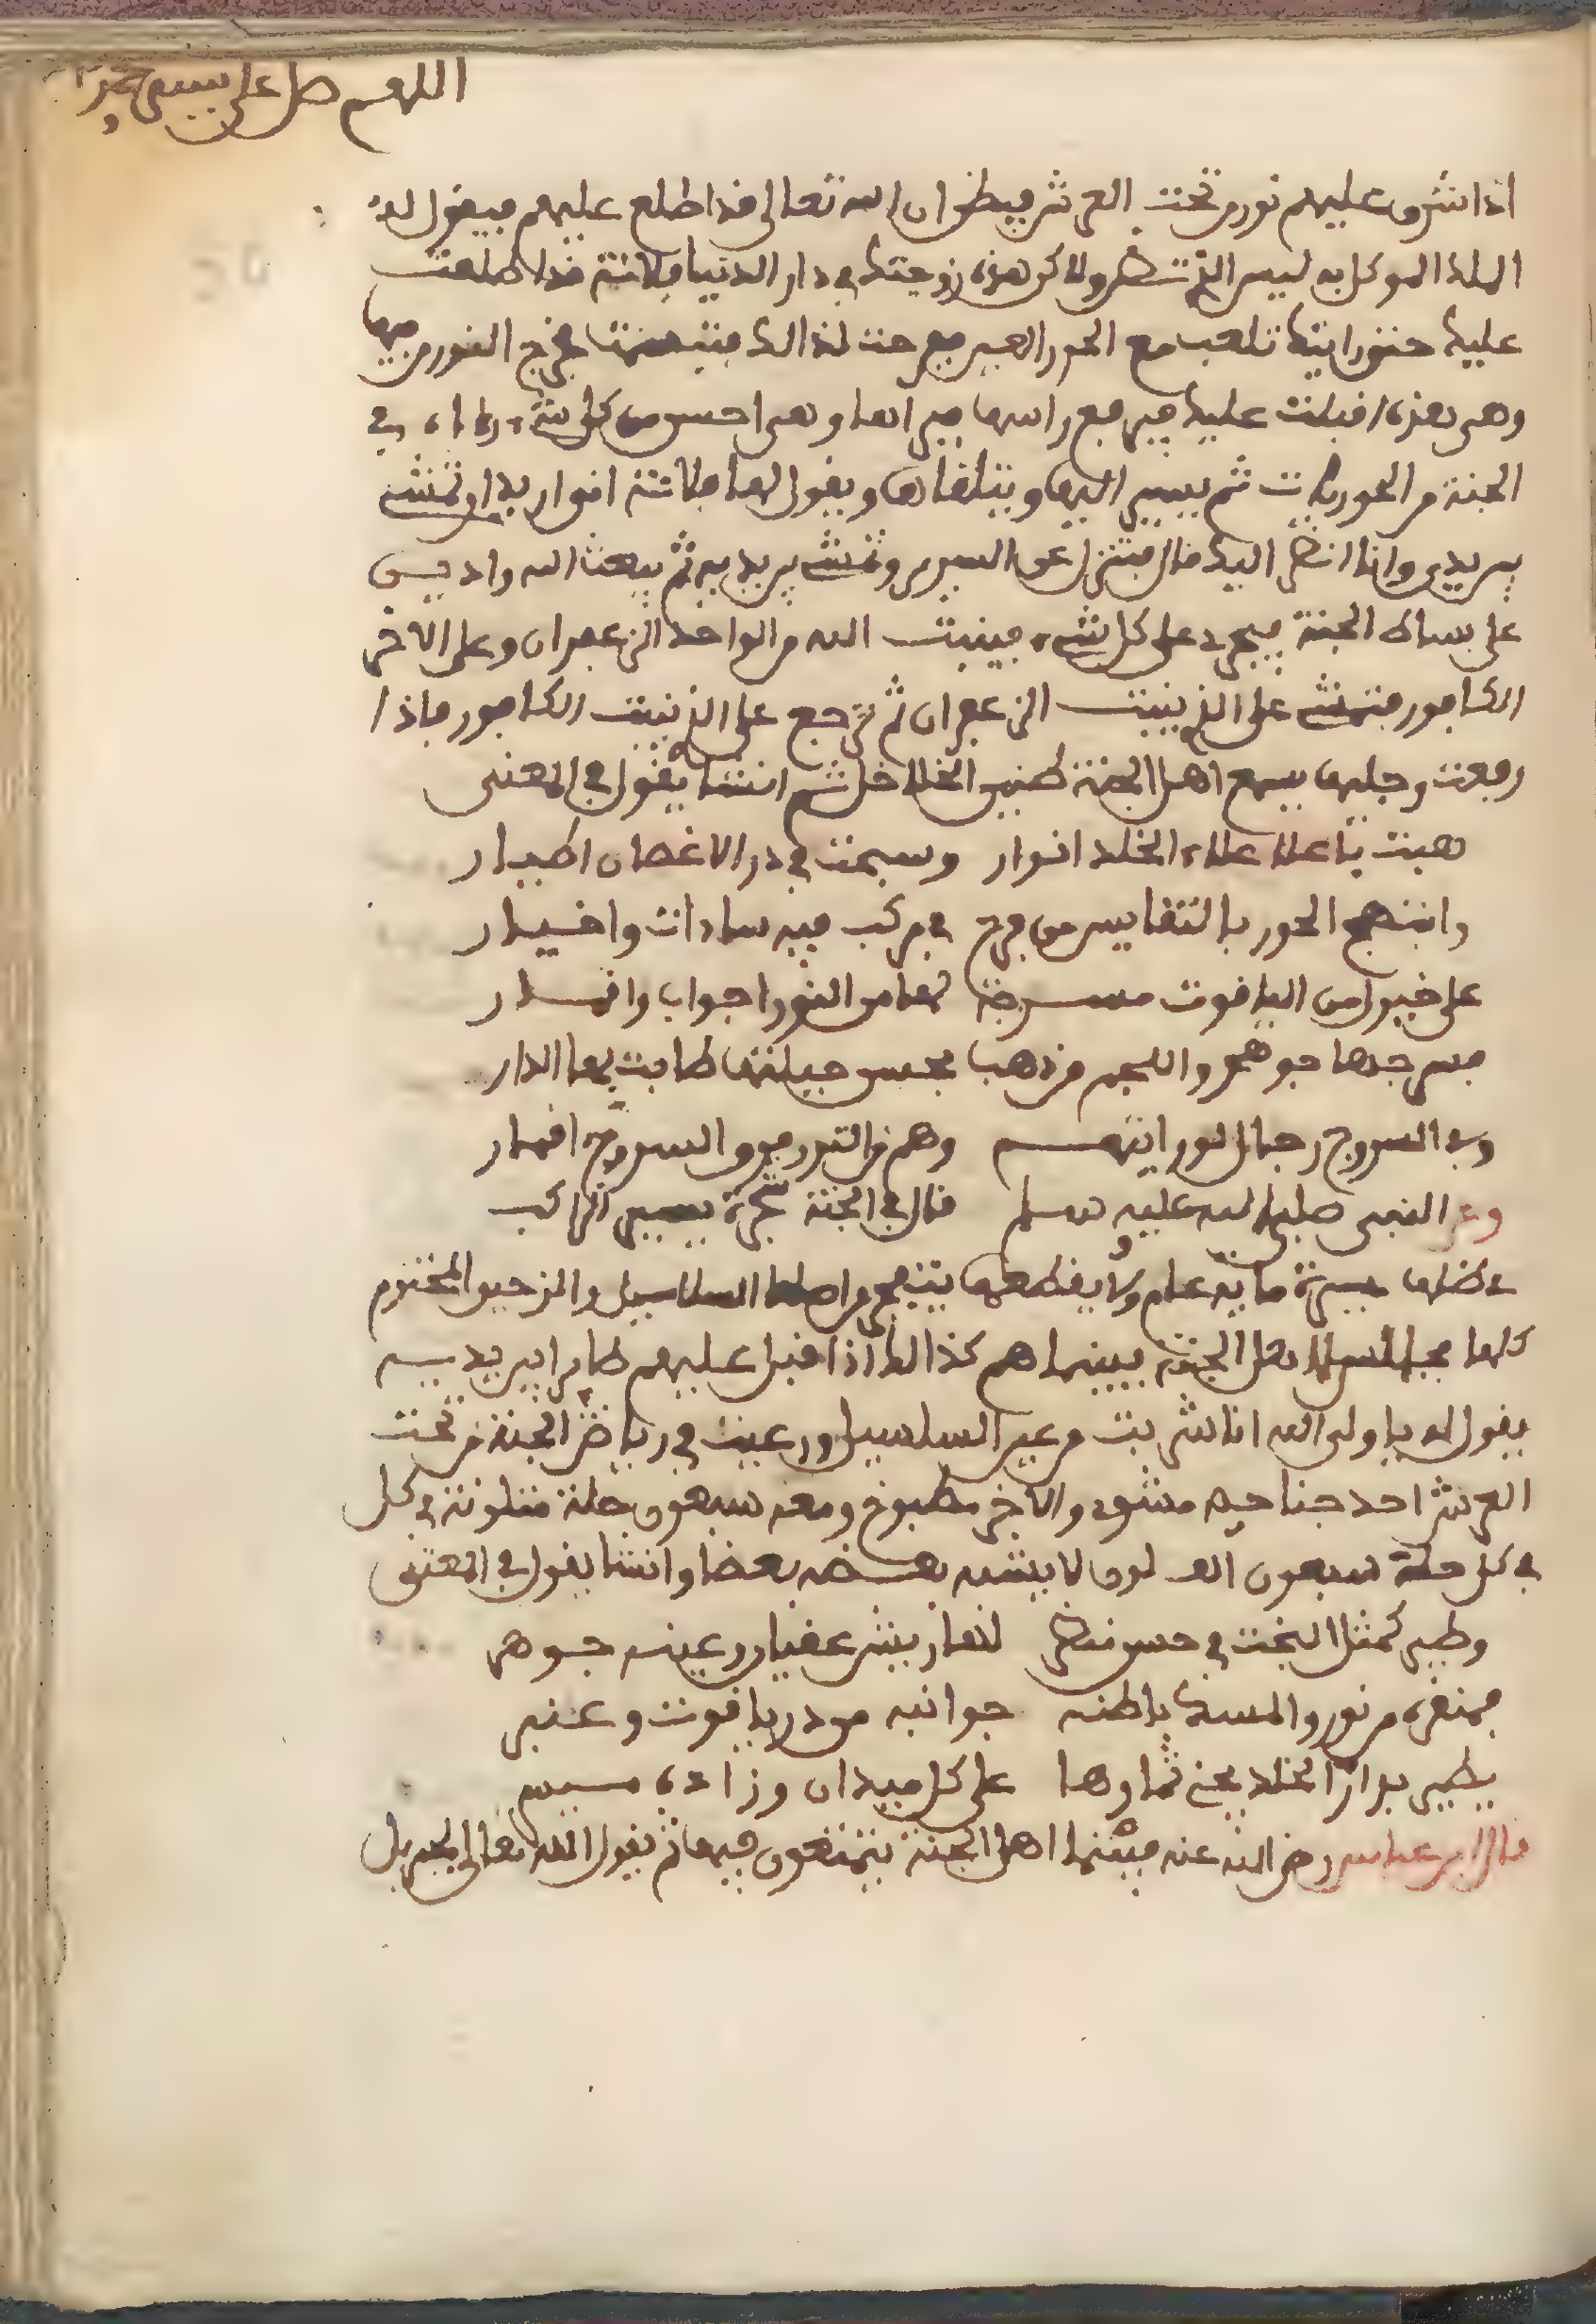 اللهم صل على سيدنا محمد
اذا اشرق عليهم نور من تحت العرش فيظن ان الله تعالى قد اطلع عليهم فيقول له
الملك الموكل به ليس الذي تنظر ولاكن هذه زوجتك في دار الدنيا فلانة قد اطلعت
عليك حتى راتك تلعب مع الحور العين ففرحت لذالك فتبسمت فخرج النور من فيها
وهي هذه اقبلت عليك فيرفع راسه فيراها وهي احسن من كل شيء راه في
الجنة من الحوريات ثم يسير اليها ويتلقاها ويقول لها فلانة اريد ان تمشي
بين يدي وانا انظر اليك قال فتنزل عن السرير وتمشي بين يديه ثم يبعث الله واديين
على بساط الجنة فيجري على كل شيء فينبت الله من الواحد الزعفران وعلى الاخر
الكافور فتمشي على الذي ينبت الزعفران ثم ترجع على الذي ينبت الكافور فاذا
رفعت رجليها يسمع اهل الجنة طنين الخلاخل ثم انشا يقول في المعنى
هبت يا علا علاء الخلد انوار وسبحت في در الاغصان اطيار
وابتهج الحور بالتقايس من فرح في مركب فيه سادات واخيار
على خيول من الياقوت مسرجة لها من النور اجواب وانهار
فسرجها جوهر واللجم من ذهب بحسن جيلتها طابت بها الدار
وفي السروج رجال لو رايتهم وهم من النور فوق السروج اقمار
وعن النبي صلى الله عليه وسلم قال في الجنة شجرة يسير الراكب
في ظلها مسيرة ماية عام ولا يقطعها يتفجر من اصلها السلسبيل والرحيق المختوم
كلها مجالس لاهل الجنة بينما هم كذالك اذا اقبل عليهم طاير بين يديه
يقول له يا ولي الله انا شربت من عين السلسبيل ورعيت في رياض الجنة من تحت
العرش احد جناحيه مشوي والاخر مطبوخ ومعه سبعون حلة متلونة في كل
في كل حلة سبعون الف لون لا يشبه بعضه بعضا وانشا يقول في المعنى
وطير كمثل البخت في حسن منظر لها ريش عقيان وعينه جوهر
فمنقره من نور والمسك باطنه جوانبه من در ياقوت وعنبر
يطير بدار الخلد يجني ثمارها على كل ميدان وزاده
قال ابن عباس رضي الله عنه فبينما اهل الجنة يتمتعون فيها ثم يقول الله تعالى لجبريل